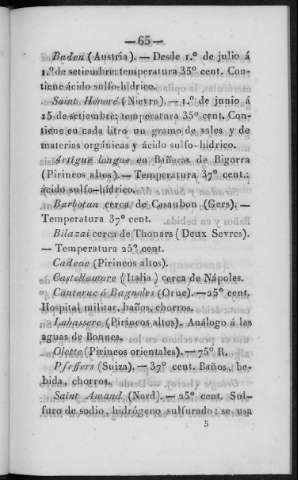 — 65 —
Baden (Austria). — Desde 1.º de julio á
1.º de setiembre: temperatura 35º cent. Con-
tiene ácido sulfo-hídrico.
Saint Honoré (Nievre). — 1.º de junio á
15 de setiembre; temperatura 35º cent. Con-
tiene en cada litro un gramo de sales y de
materias orgánicas y ácido sulfo-hídrico.
Artigue longue en Bañeras de Bigorra
(Pirineos altos). — Temperatura 37º cent.:
ácido sulfo-hídrico.
Barbotan cerca de Casaubon (Gers). —
Temperatura 37º cent.
Bilazai cerca de Thouars (Deux Sevres).
— Temperatura 25º cent.
Cadeac (Pirineos altos).
Castellamare (Italia) cerca de Nápoles.
Canteruc á Bagnoles (Orne). — 25º cent.
Hospital militar, baños, chorros.
Labassere (Pirineos altos). Análogo á las
aguas de Bonnes.
Olette (Pirineos orientales). — 75º R.
Pfeffers (Suiza). — 37º cent. Baños, be-
bida, chorros.
Saint Amand (Nord). — 25º cent. Sul-
furo de sodio, hidrógeno sulfurado: se usa
5